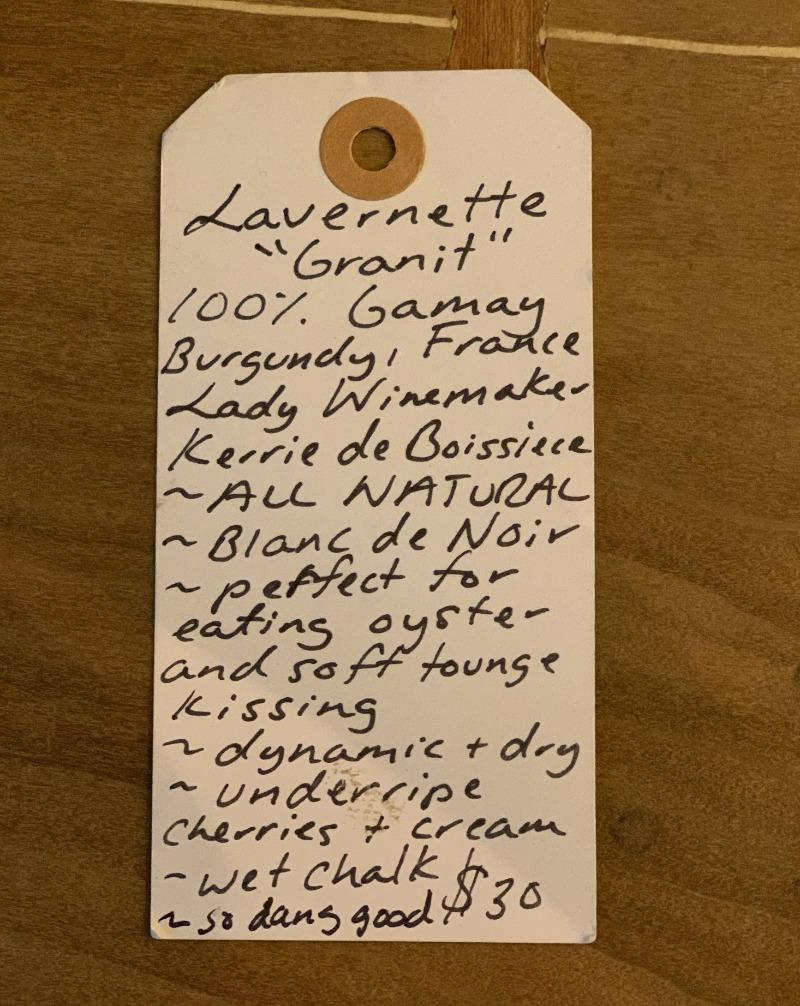 Lavernette
"Granit"
100% Gamay
Burgundy, France
Lady Winemaker
Kerrie de Boissiece
~ ALL NATURAL
~ Blanc de Noir
~ perfect for
eating oyster
and soft tounge
kissing
~ dynamic + dry
~ underripe
cherries + cream
~ wet chalk
~ so dang good! $30